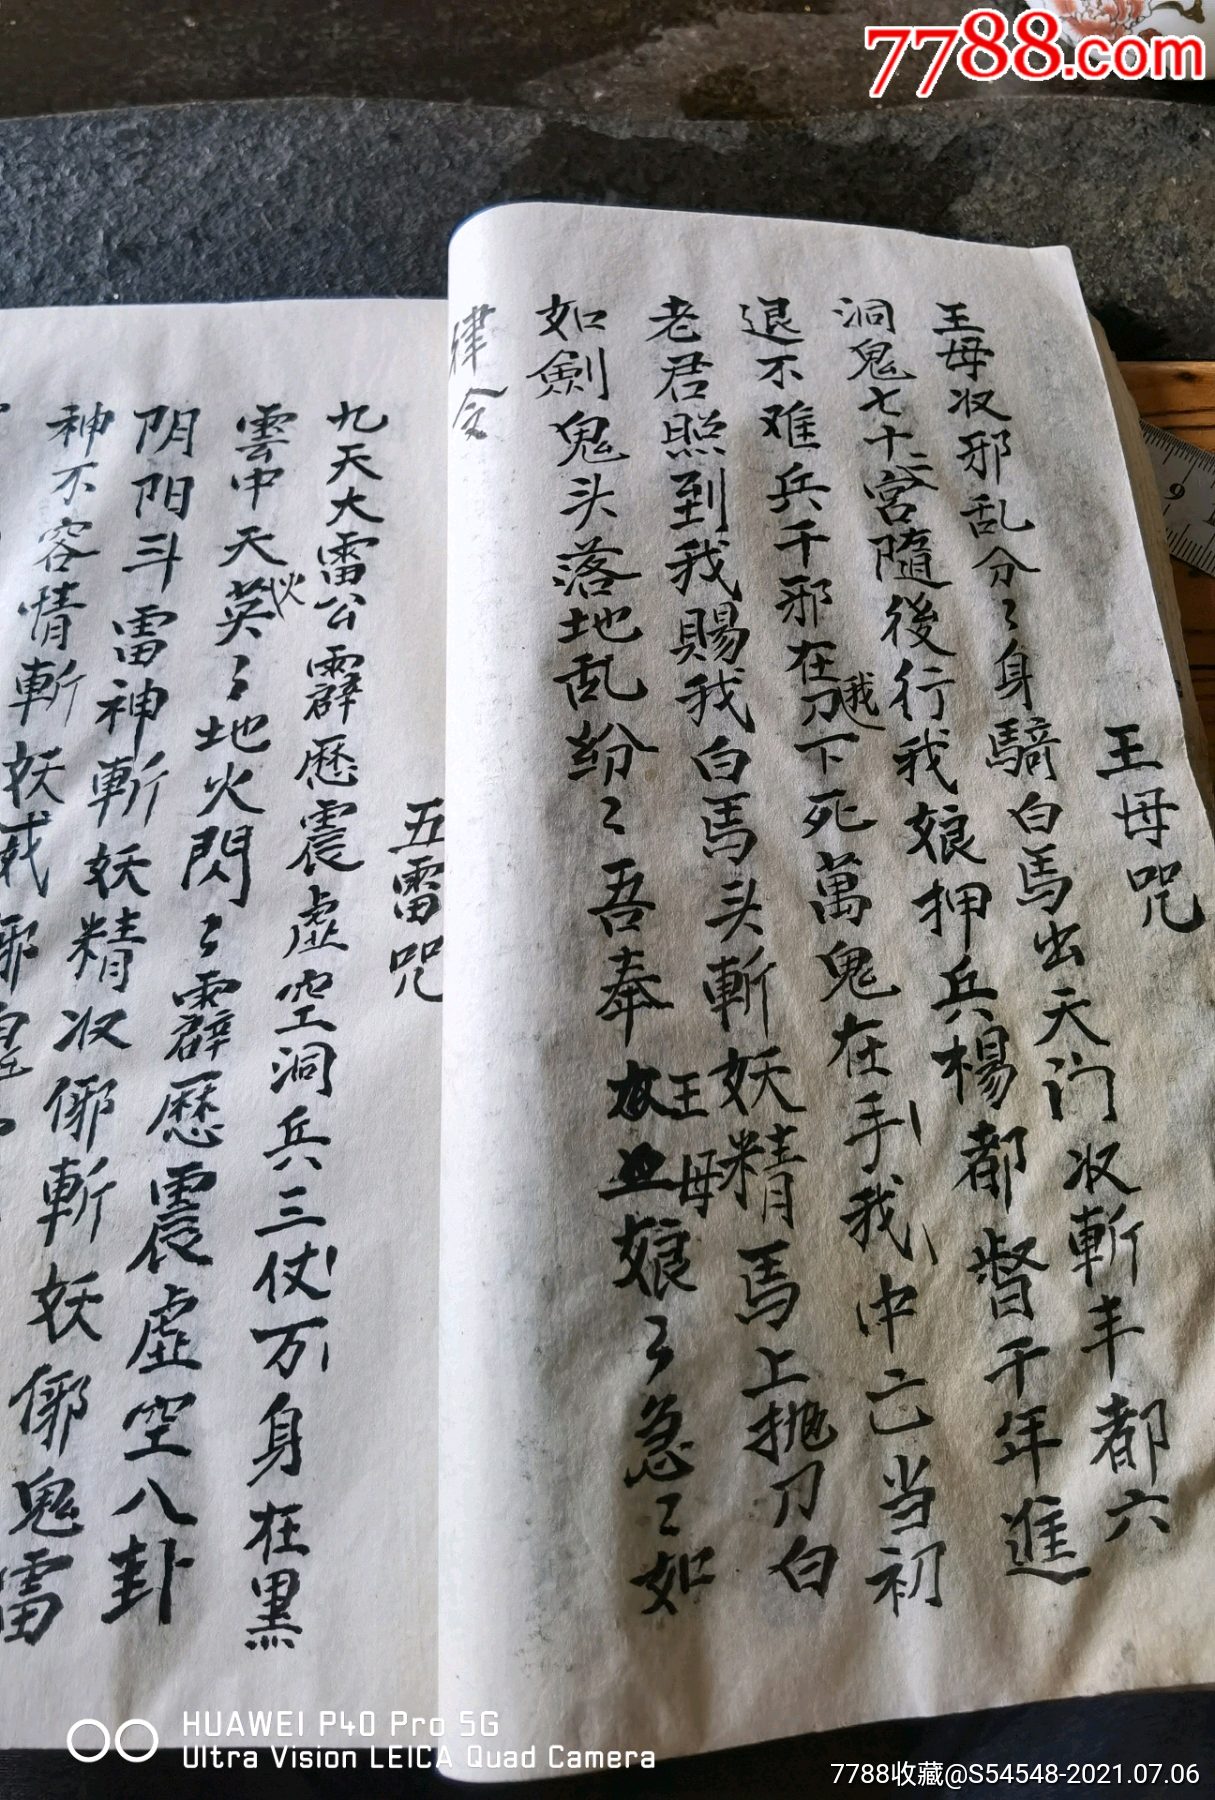 7788.com
王母咒
王母收邪乱分〻身騎白馬出天门收斬丰都六
洞鬼七十二宮随後行我娘押兵楊都督千年進
退不难兵千邪在我刀下死萬鬼在手我中亡当初
老君照到我賜我白馬头斬妖精馬上抛刀白
如劍鬼头落地乱纷〻吾奉王母娘〻急〻如
律令
五雷咒
九天大雷公霹歷震虚空洞兵三仗万身在黑
雲中天英〻地火閃〻霹歷震虚空八卦
阴阳斗雷神斬妖精收邪斬妖邪鬼雷
神不容情斬妖
HUAWEI P40 Pro 5G
Ultra Vision LEICA Quad Camera
7788收藏@S54548-2021.07.06